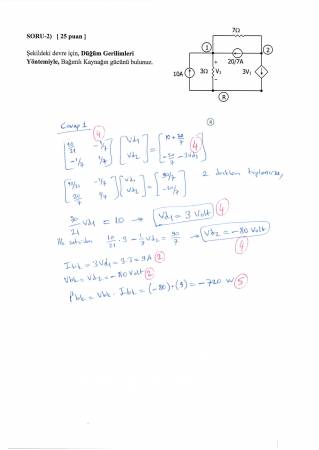 SORU-2) [ 25 puan ]
Şekildeki devre için, Düğüm Gerilimleri
Yöntemiyle, Bağımlı Kaynağın gücünü bulunuz.
7Ω
1
2
20/7A
10A
3Ω
V₁
3V₁
R
Cevap 1
4
[10/21 -1/7] [Vd1] = [10+20/7]
[-1/7 1/7] [Vd2] [-20/7 -3Vd1]
4
[10/21 -1/7] [Vd1] = [90/7]
[20/7 1/7] [Vd2] [-20/7]
2 denklem toplanırsa,
70/21 Vd1 = 10 → Vd1 = 3 Volt 4
10/21 · 3 - 1/7 Vd2 = 90/7 → Vd2 = -80 Volt
4
Ibk = 3Vd1 = 3.3 = 9A 2
Vbk = Vd2 = -80 Volt 2
Pbk = Vbk · Ibk = (-80)·(9) = -720 W 5